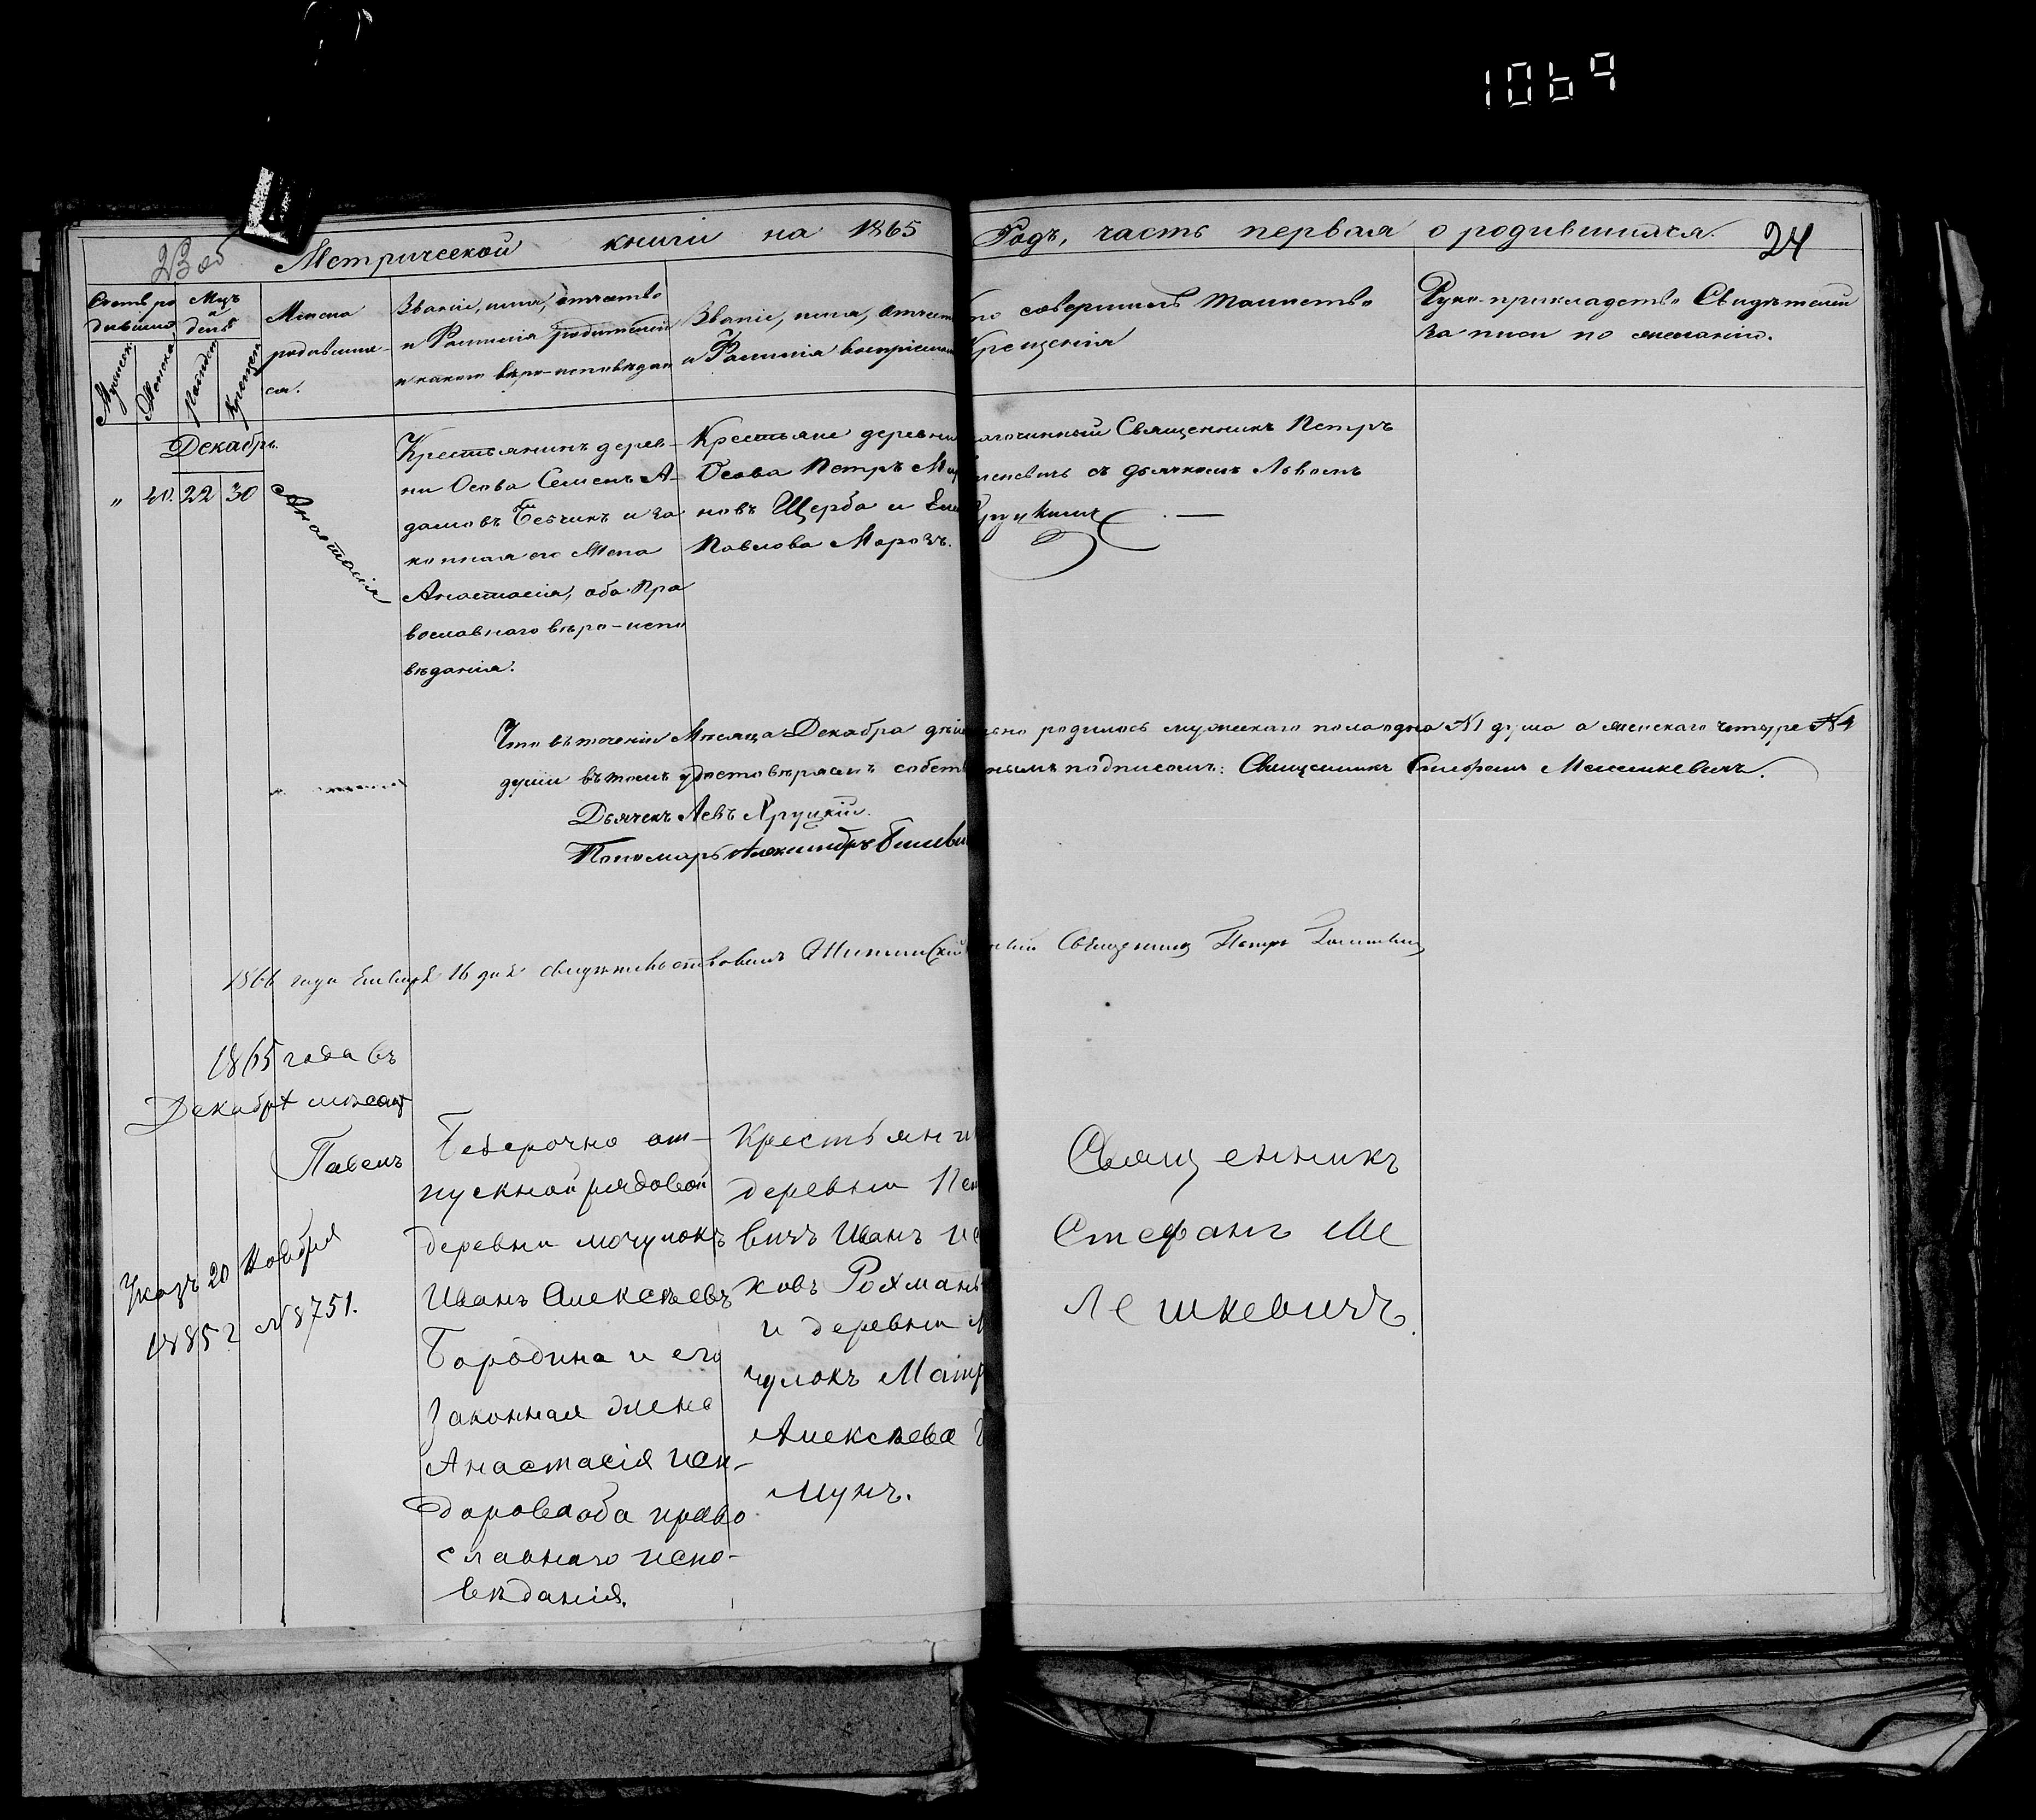 1069
Метрической книги на 1865 Годъ, часть первая о родившихся. 24
Счетъ ро
дившихся
Мужеск.
Женска
Мцъ
и
день
Рожден
Крещен
Имена
родивших-
ся.
Званіе, имя, отчество
и Фамилія родителей
и какого вѣро-исповѣдан
Званіе, имя, отчест
и Фамилія воспріемн
то совершилъ таинство
Крещенія
Руко-прикладство Свидѣтелей
записи по желанію.
Декабрь.
" 40. 22 30
Анастасія
Крестьянинъ дерев-
ни Осова Семенъ А-
дамовъ и за
конная его Жена
Анастасія, оба Пра
вославнаго вѣро-испо
вѣданія.
Крестьяне деревни
Осова Петръ
новъ Щерба и
Павлова Морозъ.
Священникъ Петръ
съ дьячкомъ Львомъ
Хруцкимъ
Что въ теченіи Мѣсяца Декабра родилось мужескаго пола одна N1 душа а женскаго четыре N4
души въ томъ удостовѣряемъ собств нымъ подписомъ: Священникъ Стефанъ Мелешкевичъ.
Дьячекъ Левъ Хруцкій.
Пономарь Александръ
1866 года Января 16 дня свидѣтельствовалъ Священникъ Петръ
1865 года въ
Декабрѣ мѣсяцѣ
Павелъ
Указъ 20 Ноября
1885 г. N 8751.
Безсрочно от-
пускной рядовой
деревни Мочулокъ
Иванъ Алексѣевъ
Бородина и его
законная жена
Анастасія Иси-
дорова оба право
славнаго испо-
вѣданія.
Крестьяни
деревни
вичъ Иванъ
ковъ Рохманъ
и деревни М
чулокъ Матр
Алексѣева
мунъ.
Священникъ
Стефанъ Ме
лешкевичъ.